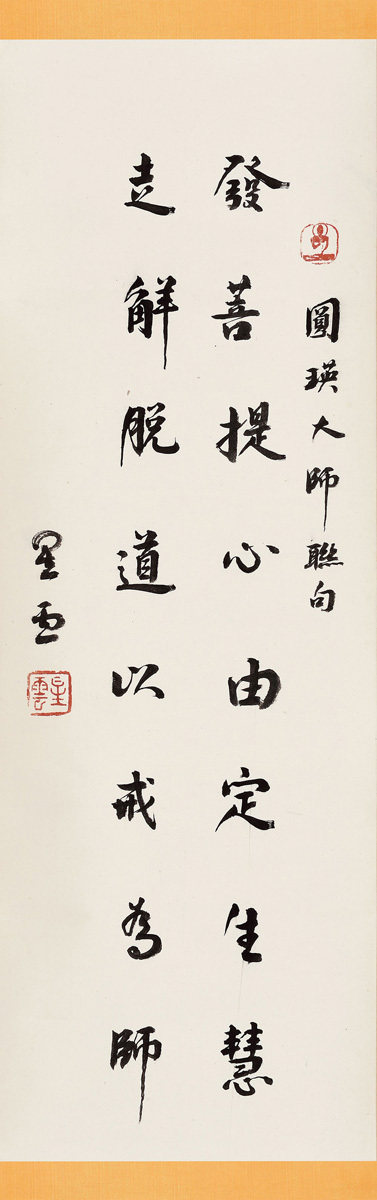 圓瑛大師聯句
發菩提心由定生慧
走解脫道以戒為師
星雲
星雲